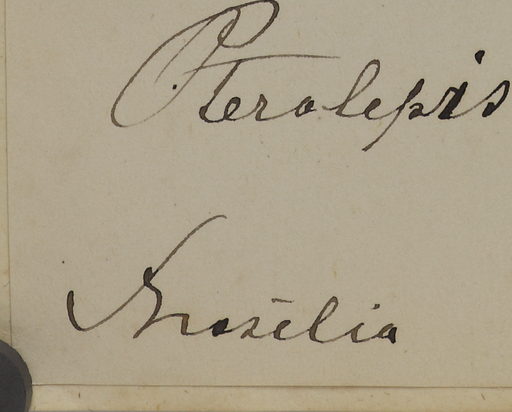 Pterolepis
Brasilia